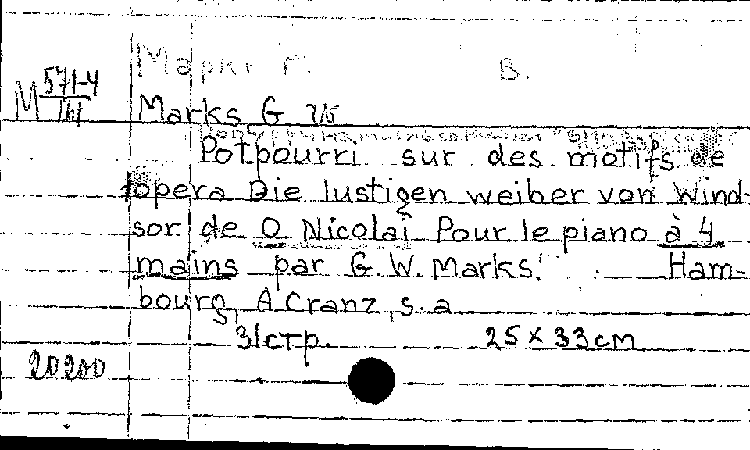 Маркс Г. В.
М 571-4
Marks G
Potpourri sur des motifs de
lopera Die lustigen weiber von Wind-
sor de O Nicolai Pour le piano à 4
mains par G. W. Marks. Ham-
bourg, A Cranz, s. a
31 стр. 25 x 33 cm
20200